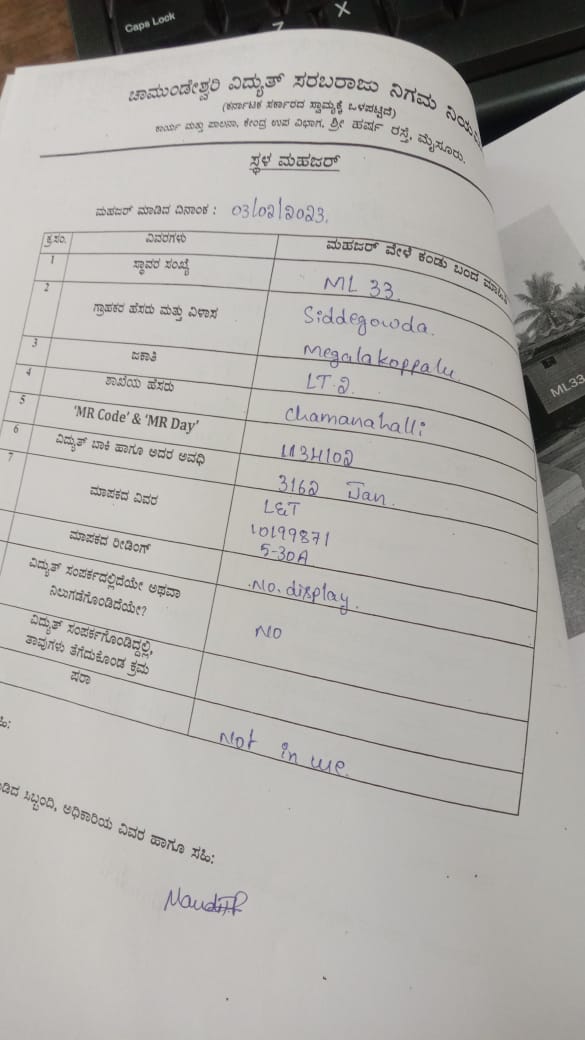 Caps Lock
Z
X
ಚಾಮುಂಡೇಶ್ವರಿ ವಿದ್ಯುತ್ ಸರಬರಾಜು ನಿಗಮ
(ಕರ್ನಾಟಕ ಸರ್ಕಾರದ ಸ್ವಾಮ್ಯಕ್ಕೆ ಒಳಪಟ್ಟಿದೆ)
ಕಾರ್ಯ ಮತ್ತು ಪಾಲನಾ, ಕೇಂದ್ರ ಉಪ ವಿಭಾಗ, ಶ್ರೀ ಹರ್ಷ ರಸ್ತೆ, ಮೈಸೂರು.
ಸ್ಥಳ ಮಹಜರ್
ಮಹಜರ್ ಮಾಡಿದ ದಿನಾಂಕ : 03/02/2023.
ಕ್ರ.ಸಂ. ವಿವರಗಳು ಮಹಜರ್ ವೇಳೆ ಕಂಡು ಬಂದ
1 ಸ್ಥಾವರ ಸಂಖ್ಯೆ ML 33.
2 ಗ್ರಾಹಕರ ಹೆಸರು ಮತ್ತು ವಿಳಾಸ Siddegowda.
Megalakoppalu.
3 ಜಕಾತಿ LT.2.
4 ಶಾಖೆಯ ಹೆಸರು Chamanahalli
5 'MR Code' & 'MR Day'
6 ವಿದ್ಯುತ್ ಬಾಕಿ ಹಾಗೂ ಅದರ ಅವಧಿ 3162 Jan.
7 ಮಾಪಕದ ವಿವರ L&T
10199871
5-30A
ಮಾಪಕದ ರೀಡಿಂಗ್ No. display.
ವಿದ್ಯುತ್ ಸಂಪರ್ಕದಲ್ಲಿದೆಯೇ ಅಥವಾ
ನಿಲುಗಡೆಗೊಂಡಿದೆಯೇ? NO
ವಿದ್ಯುತ್ ಸಂಪರ್ಕಗೊಂಡಿದ್ದಲ್ಲಿ,
ತಾವುಗಳು ತೆಗೆದುಕೊಂಡ ಕ್ರಮ
ಷರಾ Not in use.
ಸಿಬ್ಬಂದಿ, ಅಧಿಕಾರಿಯ ವಿವರ ಹಾಗೂ ಸಹಿ:
ML33